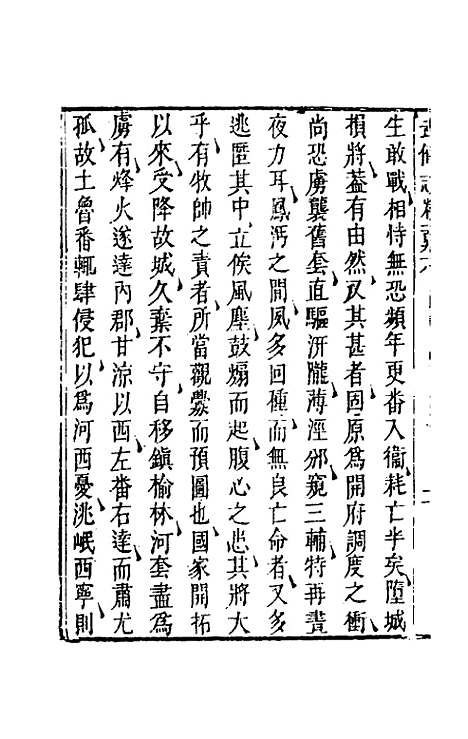 生敢戰相恃無恐頻年更番入衞耗亡半矣墮城
損將葢有由然又其甚者固原爲開府調度之衝
尚恐虜襲舊套直驅汧隴薄涇邠窺三輔特再晝
夜力耳鳳沔之間風多回種而無良亡命者又多
逃匿其中立候風塵鼓煽而起腹心之患其將大
乎有牧帥之責者所當觀釁而預圖也國家開拓
以來受降故城久棄不守自移鎮榆林河套盡爲
虜有烽火遂達內郡甘涼以西左番右達而肅尤
孤故土魯番輒肆侵犯以爲河西憂洮岷西寧則